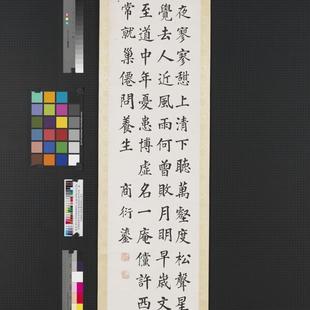 夜寥寥憇上清下聽萬壑度松聲星
覺去人近風雨何曾敗月明早歲文
至道中年憂患博虛名一庵儻許西
常就巢僊問養生 商衍鎏